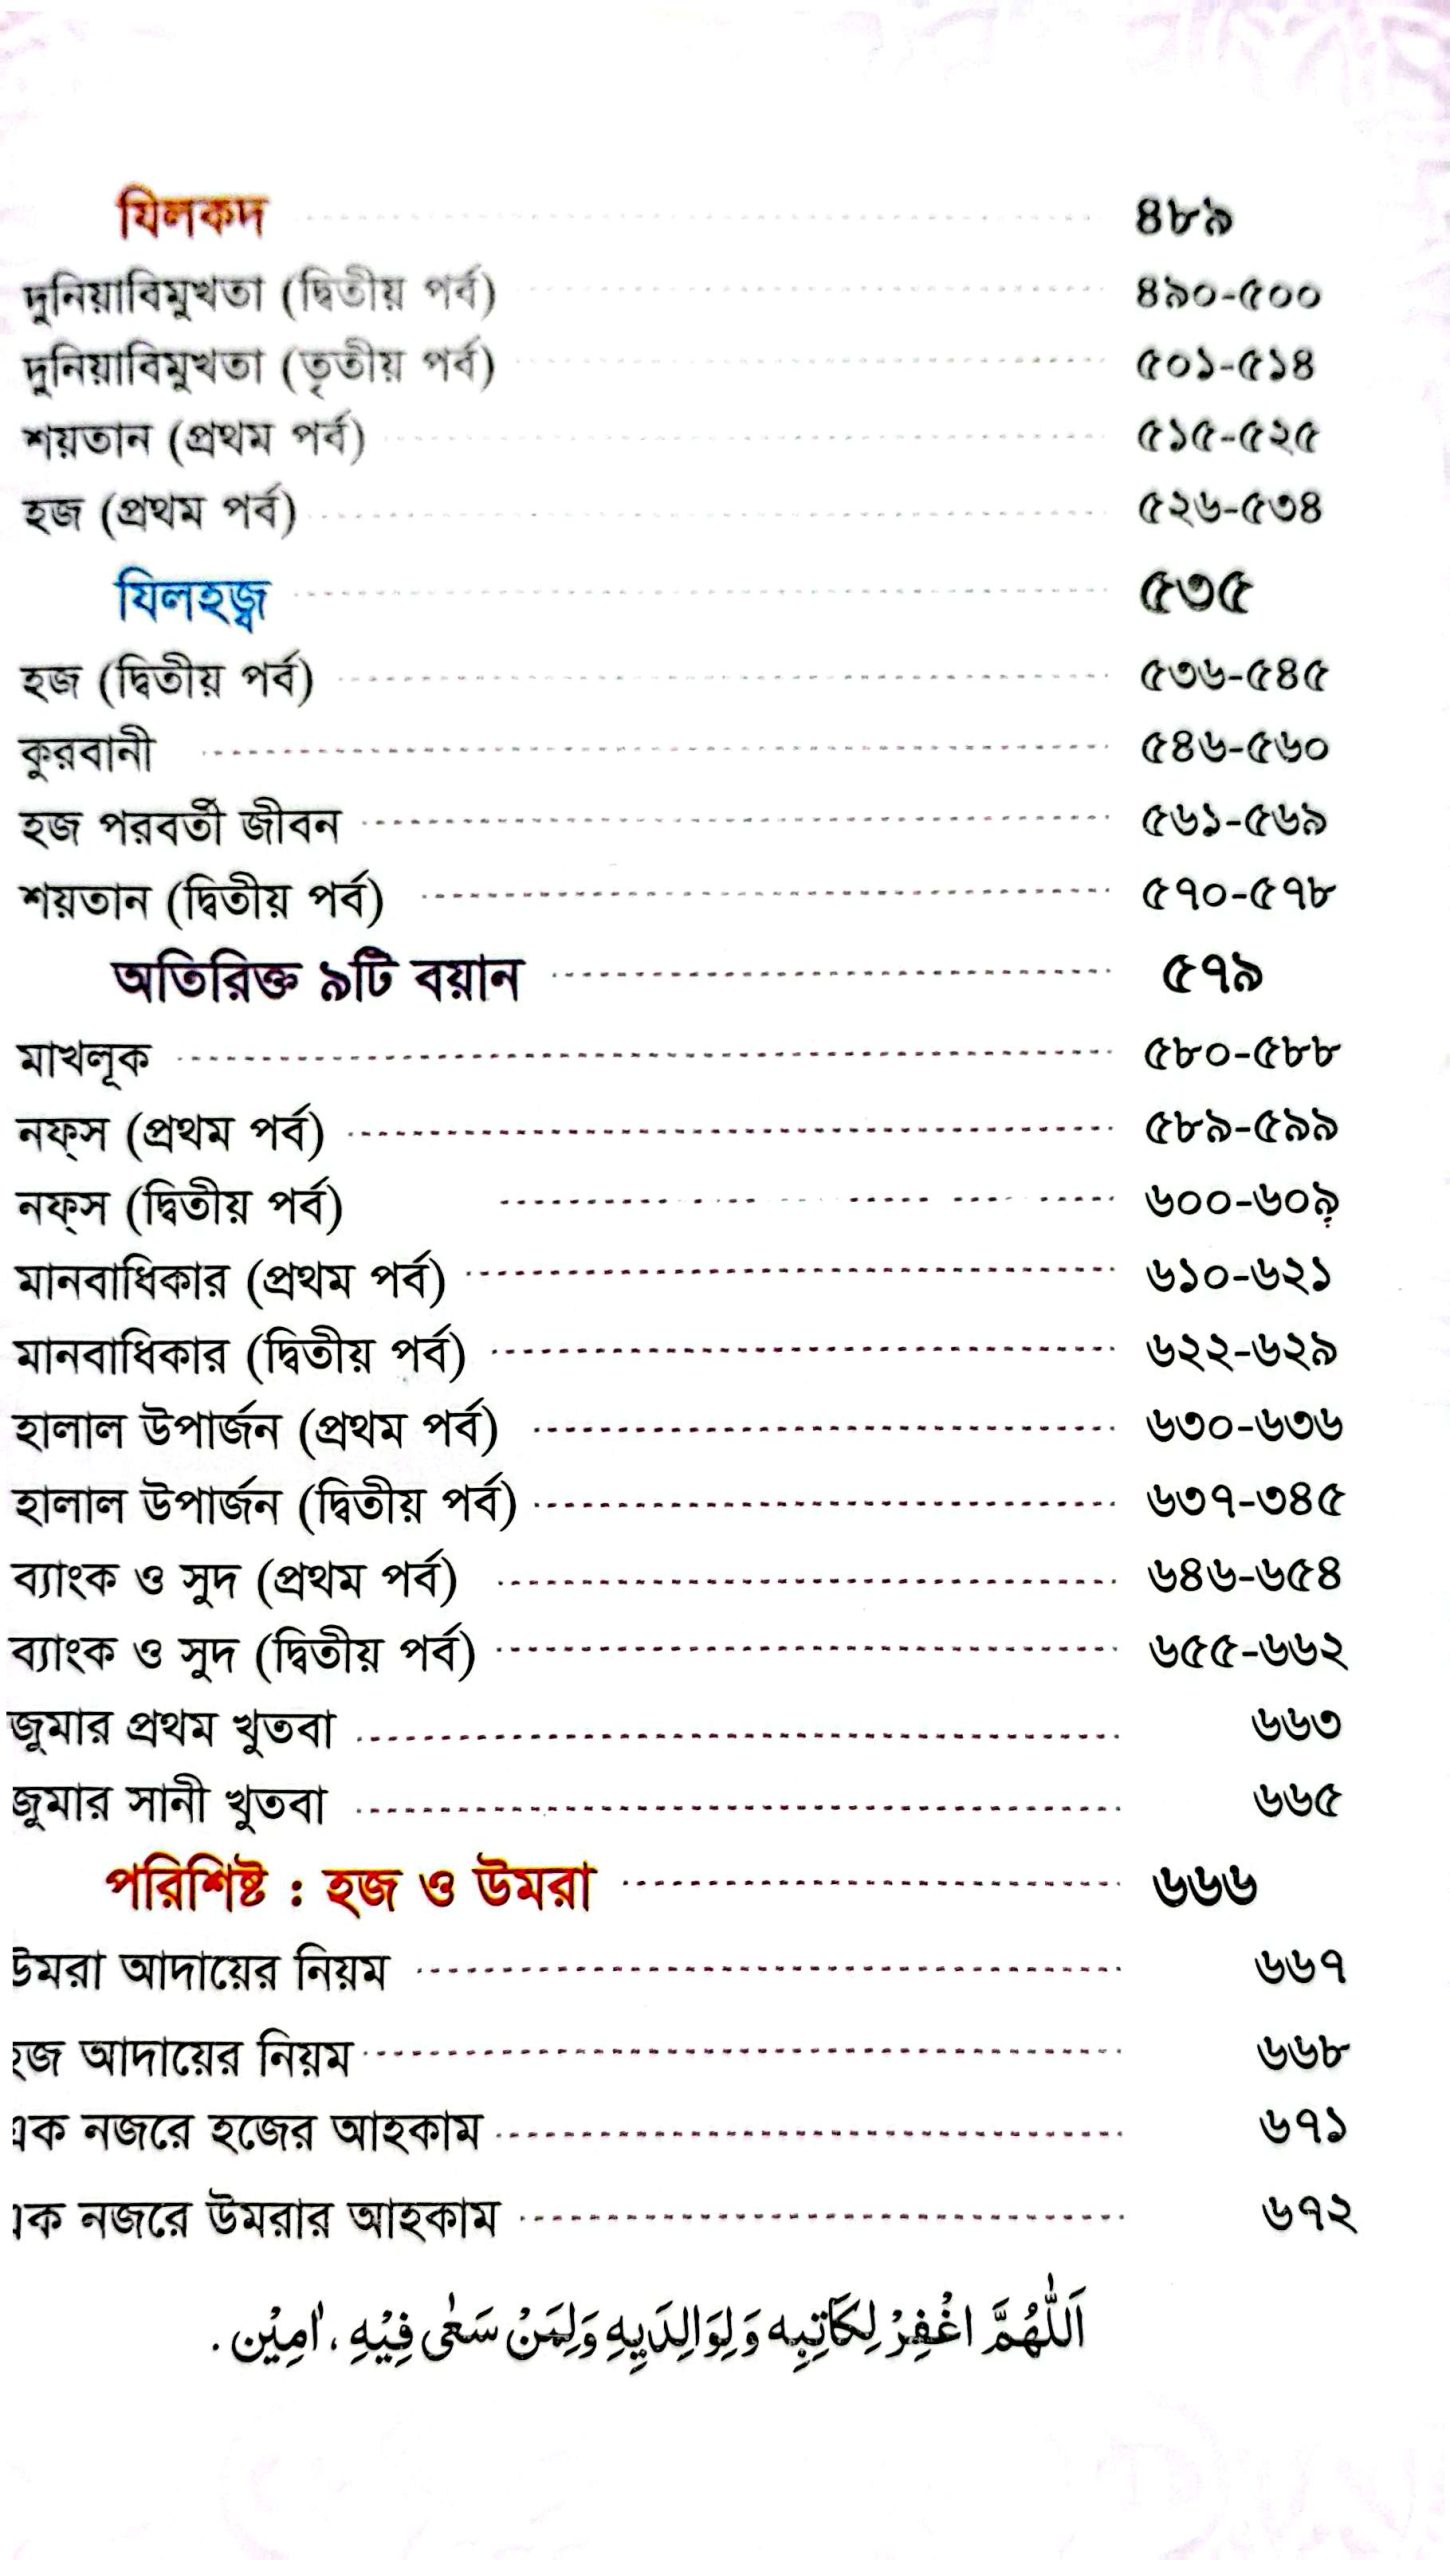 যিলকদ ৪৮৯
দুনিয়াবিমুখতা (দ্বিতীয় পর্ব) ৪৯০-৫০০
দুনিয়াবিমুখতা (তৃতীয় পর্ব) ৫০১-৫১৪
শয়তান (প্রথম পর্ব) ৫১৫-৫২৫
হজ (প্রথম পর্ব) ৫২৬-৫৩৪
যিলহজ্ব ৫৩৫
হজ (দ্বিতীয় পর্ব) ৫৩৬-৫৪৫
কুরবানী ৫৪৬-৫৬০
হজ পরবর্তী জীবন ৫৬১-৫৬৯
শয়তান (দ্বিতীয় পর্ব) ৫৭০-৫৭৮
অতিরিক্ত ৯টি বয়ান ৫৭৯
মাখলূক ৫৮০-৫৮৮
নফ্স (প্রথম পর্ব) ৫৮৯-৫৯৯
নফ্স (দ্বিতীয় পর্ব) ৬০০-৬০৯
মানবাধিকার (প্রথম পর্ব) ৬১০-৬২১
মানবাধিকার (দ্বিতীয় পর্ব) ৬২২-৬২৯
হালাল উপার্জন (প্রথম পর্ব) ৬৩০-৬৩৬
হালাল উপার্জন (দ্বিতীয় পর্ব) ৬৩৭-৩৪৫
ব্যাংক ও সুদ (প্রথম পর্ব) ৬৪৬-৬৫৪
ব্যাংক ও সুদ (দ্বিতীয় পর্ব) ৬৫৫-৬৬২
জুমার প্রথম খুতবা ৬৬৩
জুমার সানী খুতবা ৬৬৫
পরিশিষ্ট : হজ ও উমরা ৬৬৬
উমরা আদায়ের নিয়ম ৬৬৭
হজ আদায়ের নিয়ম ৬৬৮
এক নজরে হজের আহকাম ৬৭১
এক নজরে উমরার আহকাম ৬৭২
اَللّٰهُمَّ اغْفِرْ لِكَاتِبِه وَلِوَالِدَيِهِ وَلِمَنْ سَعٰى فِيْهِ ، اٰمِيْن .